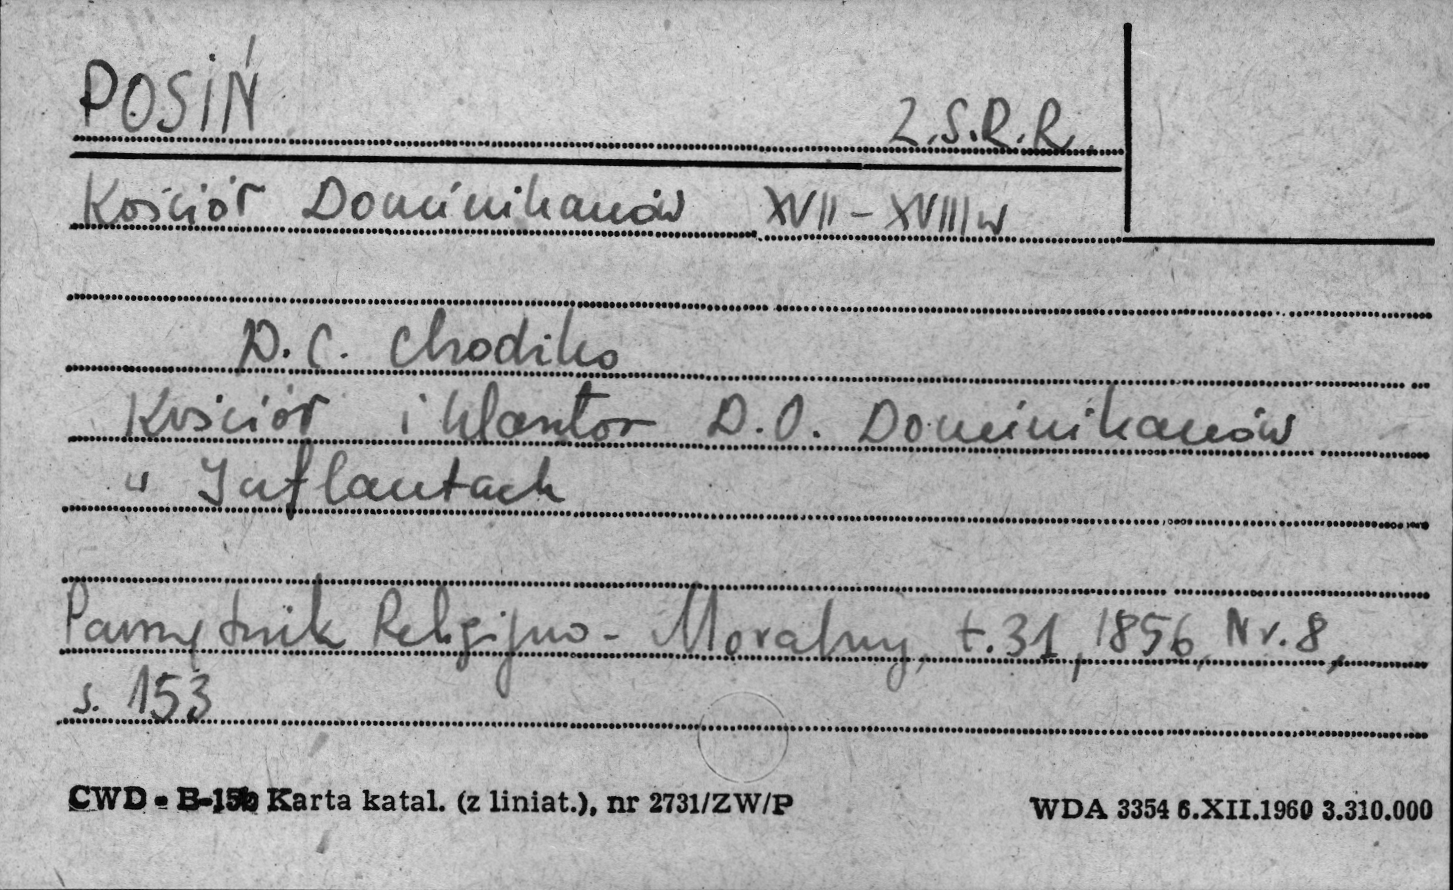 POSIŃ Z.S.R.R.
Kościół Dominikanów XVII-XVIII w
D.C. Chodźko
Kościół i klasztor D.O. Dominikanów
w Inflantach
Pamiętnik Religijno-Moralny, t.31, 1856, Nr.8,
s. 153
CWD - B-15b Karta katal. (z liniat.), nr 2731/ZW/P WDA 3354 6.XII.1960 3.310.000